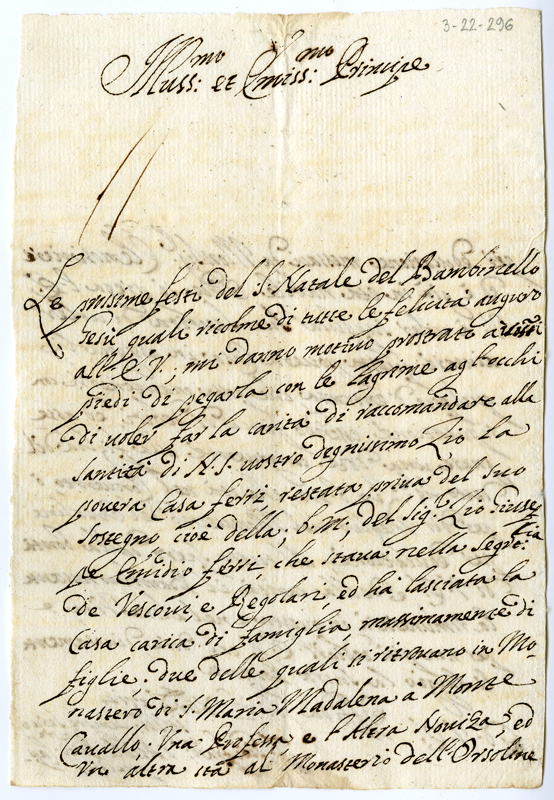 3-22-296
Illuss:mo et Emiss:mo Principe
Le prissime festi del S. Natale del Bambinello
Giesù quali ricolme di tutte le felicità auguro
all'E.V., mi danno motivo prostrato a suoi
piedi di pegarla con le lagrime agl'occhi
di uoler far la carità di raccomandare alla
Santità di N.S. uostro degnissimo Zio la
pouera Casa ferri, restata priua del suo
sostegno cioè della, b.m., del Sig.r Zio Giusep
pe Emidio ferri, che staua nella Segre:ria
de Vescoui, e Regolari, ed hà lasciata la
Casa carica di famiglia, massimamente di
figlie: due delle quali si ritrouano in Mo-
nastero di S. Maria Madalena à Monte
Cauallo, Una Professa, e l'Altra Nouiza, ed
Un altra stà al Monasterio dell'Orsoline